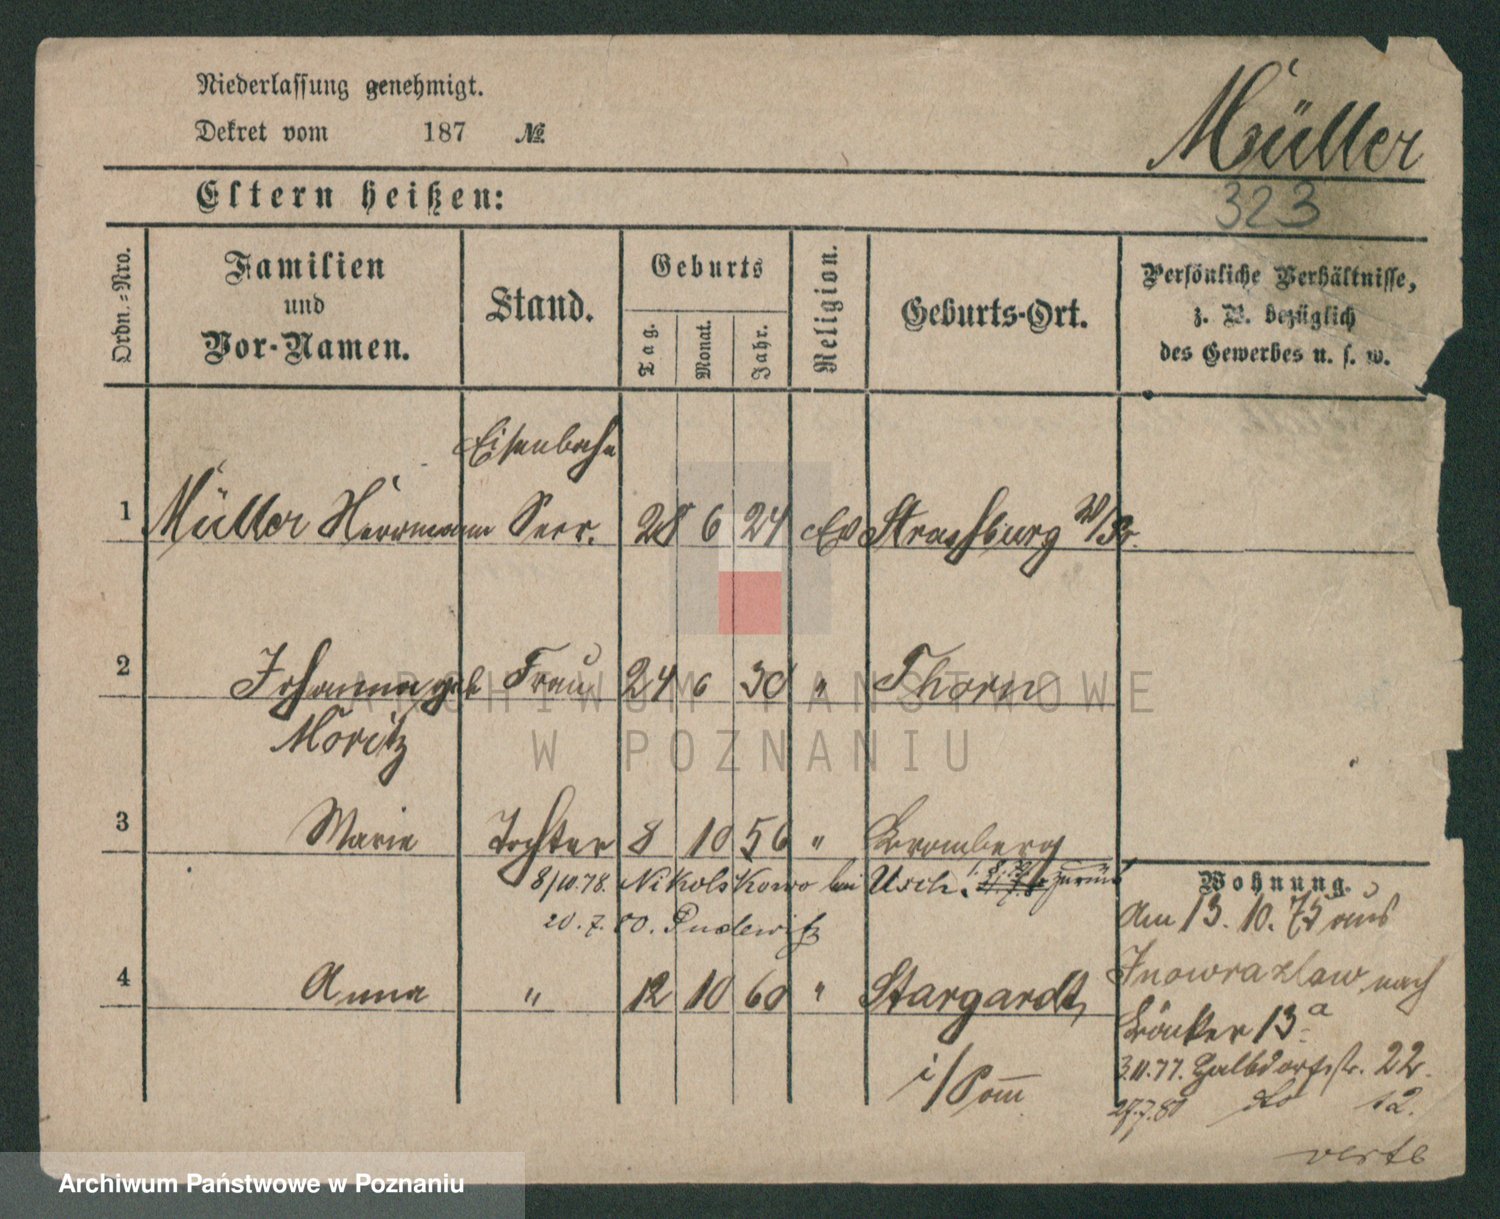 Niederlassung genehmigt.
Dekret vom 187 №
Müller
323
Eltern heißen:
Ordn.-Nro.
Familien
und
Vor-Namen.
Stand.
Geburts
Tag.
Monat.
Jahr.
Religion.
Geburts-Ort.
Persönliche Verhältnisse,
z. B. bezüglich
des Gewerbes u. s. w.
Eisenbahn
1 Müller Herrmann Secr. 28 6 24 Ev Strassburg W/Pr.
2 Johanna geb Frau 24 6 30 " Thorn
Moritz
3 Marie Tochter 8 10 56 " Bromberg
8/10.78. Nikolskowo bei Usch. zurück
20.7.80. Pudewitz
4 Anna " 12 10 60 " Stargardt,
i/Pom
Wohnung.
Am 13. 10. 75 aus
Inowrazlaw nach
Bäcker 13a
3.11.77. Halbdorfstr. 22.
27.7.80 do 12.
verte
ARCHIWUM PAŃSTWOWE
W POZNANIU
Archiwum Państwowe w Poznaniu